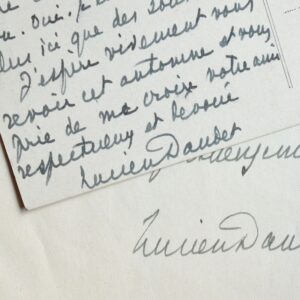 Oui.
plus ici que des sou
J'espère vivement vous
revoir cet automne et vous
prie de me croix votre ami
respectueux et dévoué
Lucien Daudet
Lucien Dau